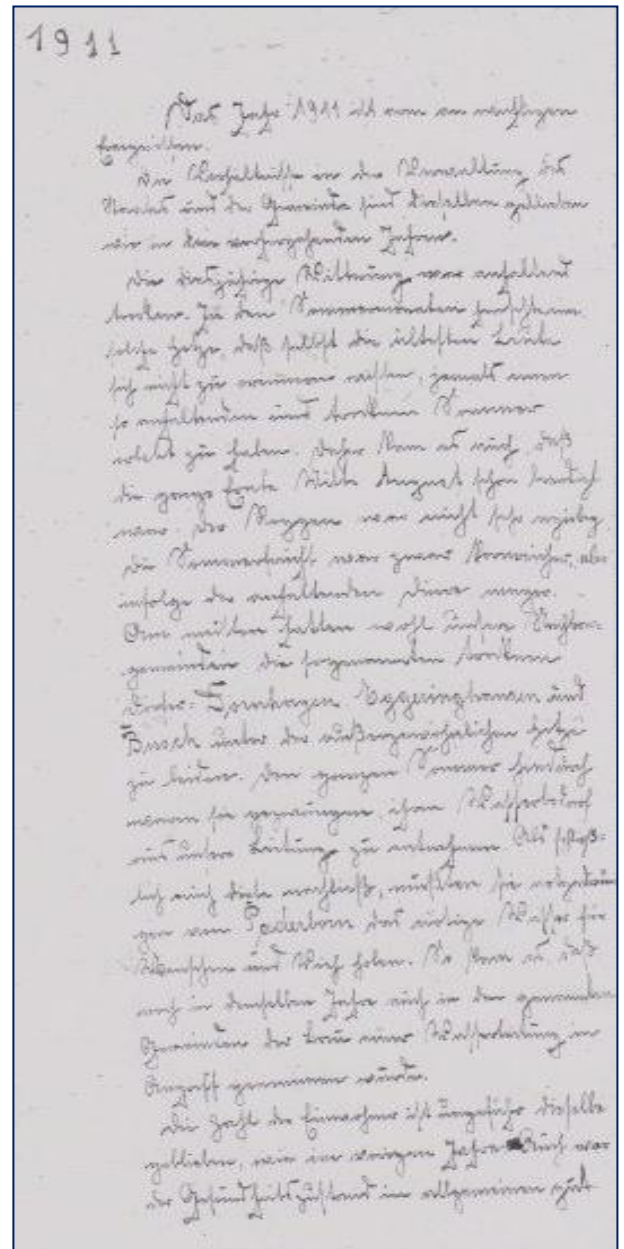 1911
Das Jahr 1911 ist arm an wichtigen
Ereignissen.
Die Verhältnisse in der Verwaltung des
Staates und der Gemeinde sind dieselben geblieben
wie in den vorhergehenden Jahren.
Die diesjährige Witterung war anhaltend
trocken. In den Sommermonaten herrschte eine
solche Hitze, daß selbst die ältesten Leute
sich nicht zu erinnern wußten, jemals einen
so anhaltenden und trockenen Sommer
erlebt zu haben. Daher kam es auch, daß
die ganze Ernte Mitte August schon beendigt
war. Der Roggen war nicht sehr ergiebig
die Sommerfrucht war zwar körnreicher, aber
infolge der anhaltenden Dürre mager.
Am meisten hatten wohl unsere Nachbar-
gemeinden die sogenannten trockenen
Dörfer: Dörenhagen Eggeringhausen und
Busch unter der außergewöhnlichen Hitze
zu leiden. Den ganzen Sommer hindurch
waren sie gezwungen, ihren Wasserbedarf
aus unserer Leitung zu entnehmen. Als schließ-
lich auch diese nachließ, mußten sie
von Paderborn das nötige Wasser für
Menschen und Vieh holen. So kam es, daß
noch in demselben Jahre auch in den genannten
Gemeinden der Bau einer Wasserleitung in
Angriff genommen wurde.
Die Zahl der Einwohner ist ungefähr dieselbe
geblieben, wie im vorigen Jahre. Auch war
der Gesundheitszustand im allgemeinen gut